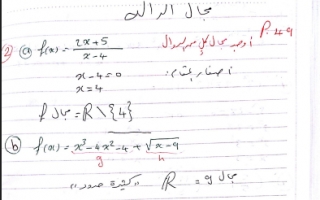 مجال الدالة
P. 49
2) a) f(x) = 2x+5 / x-4 أوجد مجال كل من الدوال
x-4=0 أصفار المقام:
x=4
مجال f = R \ {4}
b) f(x) = x³-4x²-4 + √x-9
g h
مجال g = R "كثيرة حدود"